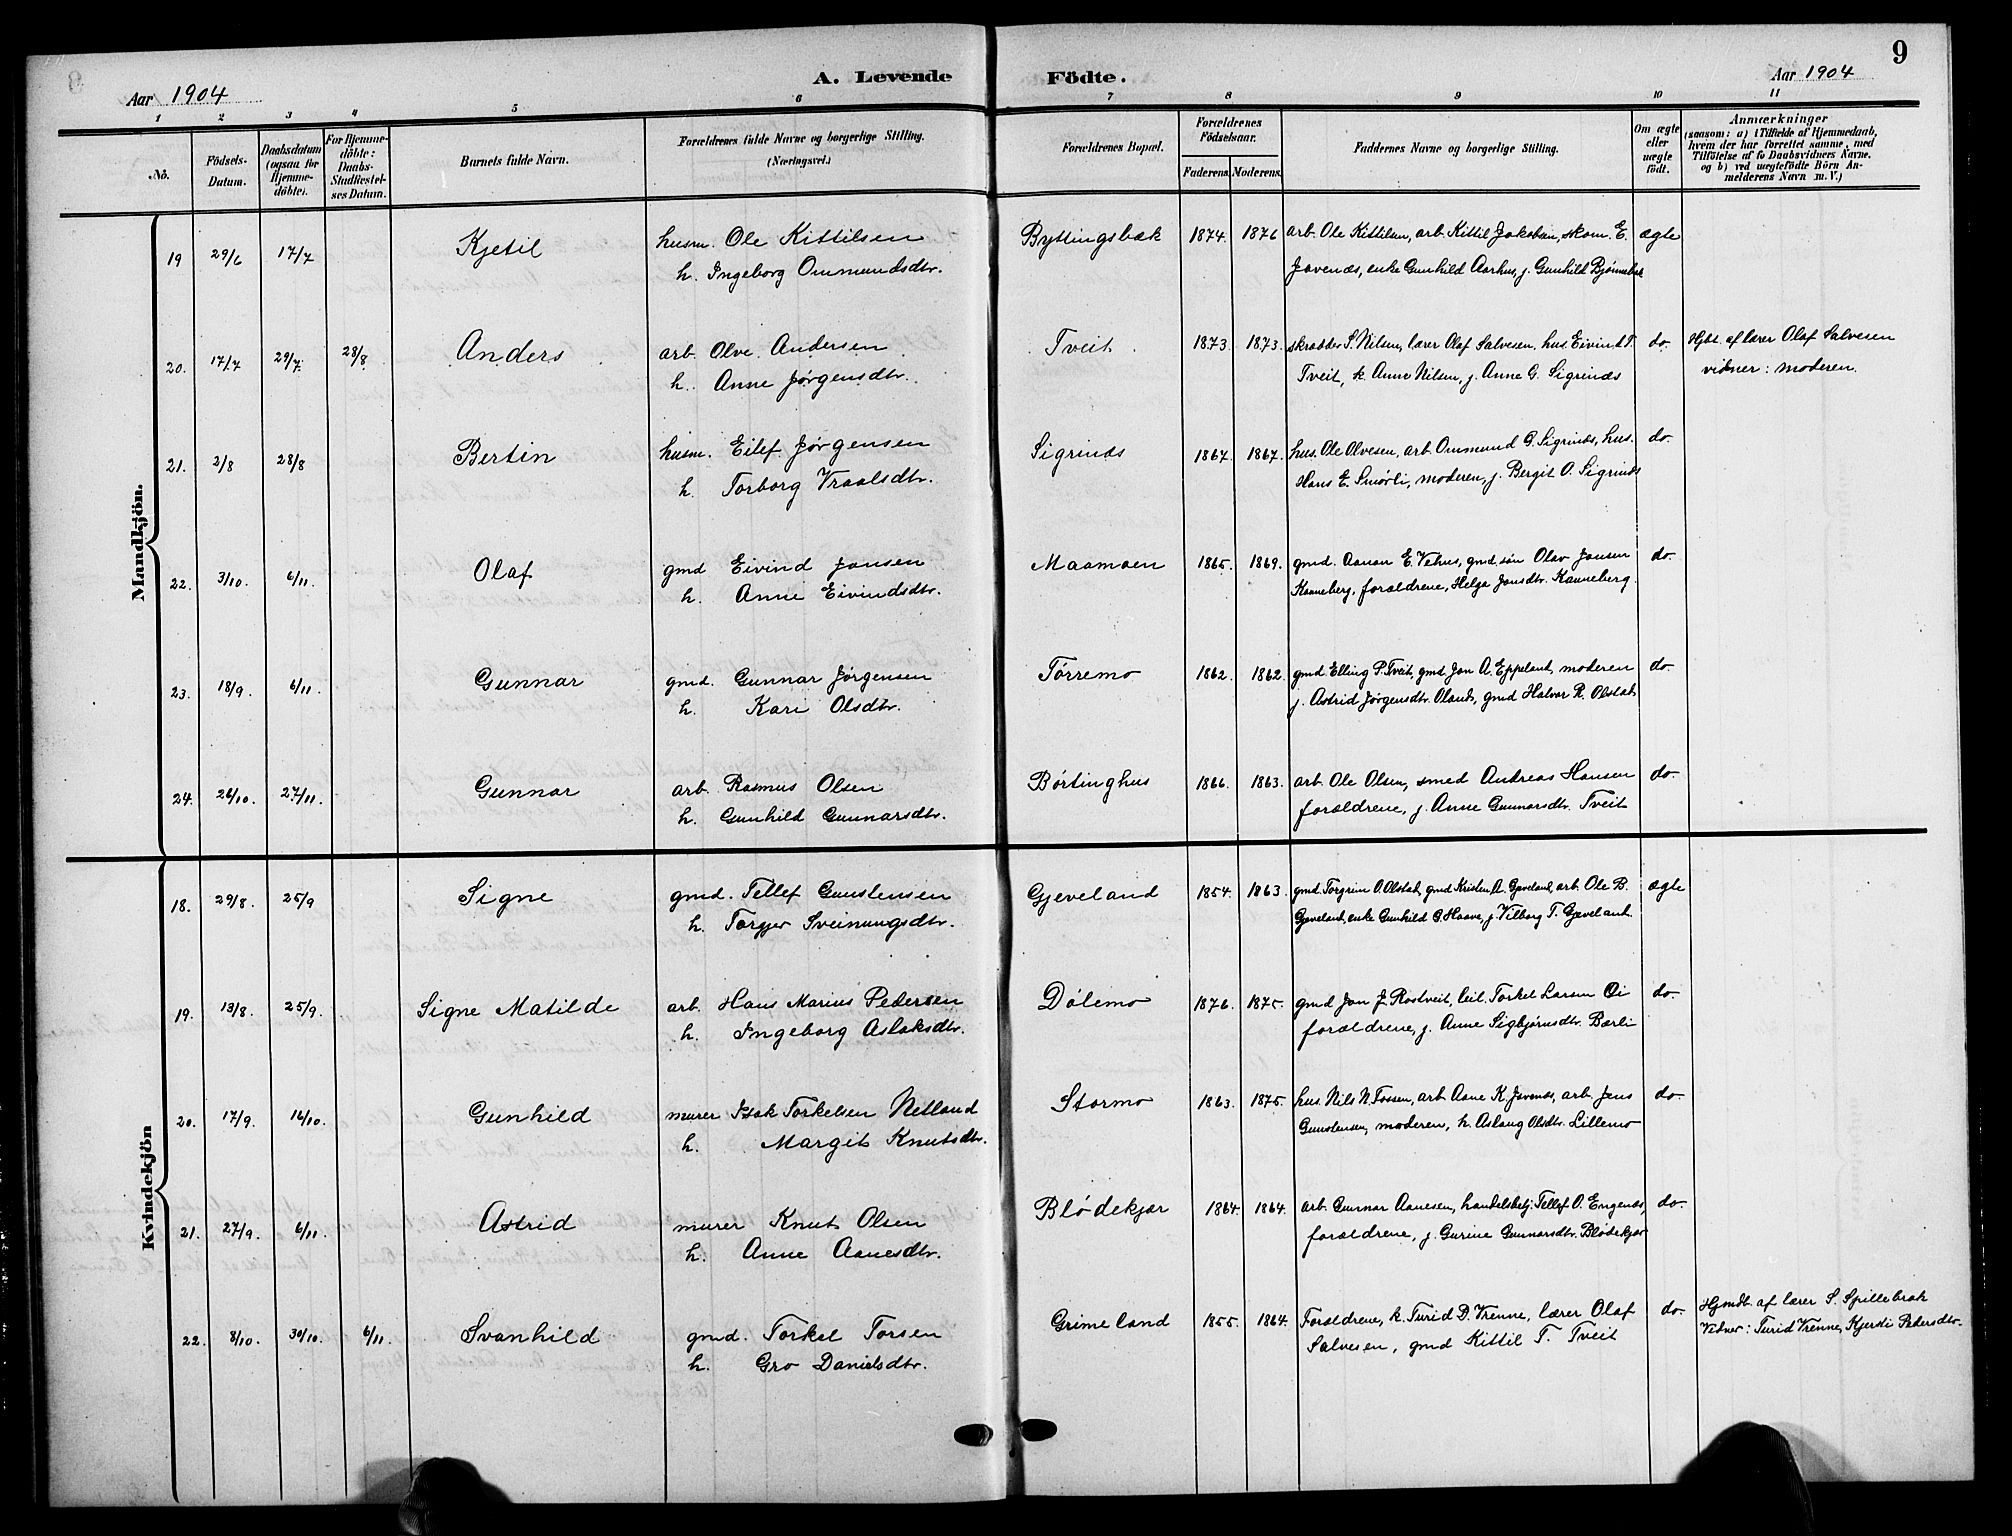 9
A. Levende Födte.
Aar 1904
Aar 1904
1 2 3 4 5 6 7 8 9 10 11
No.
Födsels-Datum.
Daabsdatum (ogsaa for Hjemme-döbte).
For Hjemme-döbte: Daabs-Stadfæstel-ses Datum.
Barnets fulde Navn.
Forældrenes fulde Navne og borgerlige Stilling. (Næringsvei.)
Forældrenes Bopæl.
Forældrenes Födselsaar.
Faderens. Moderens.
Faddernes Navne og borgerlige Stilling.
Om ægte eller uægte födt.
Anmærkninger
(saasom: a) i Tilfælde af Hjemmedaab,
hvem der har forrettet samme, med
Tilföielse af to Daabsvidners Navne,
og b) ved uægtefödte Börn An-
melderens Navn m. V.)
Mandkjön.
19 29/6 17/7 Kjetil husm. Ole Kittilsen Byttingsbæk 1874. 1876 arb. Ole Kittilsen, arb. Kittil Jakobsen, skom. E. ægte
h. Ingeborg Ommundsdtr. Jovenæs, enke Gunhild Aarhus, j. Gunhild
20. 17/7 29/7 28/8 Anders arb. Olve Andersen Tveit. 1873. 1873. skrædder S. Nilsen, lærer Olaf Salvesen, hus. Eivind T. do. Hjbt. af lærer Olaf Salvesen
h. Anne Jørgensdtr. Tveit, k. Anne Nilsen, j. Anne G. Sigrinæs vidner: moderen.
21. 2/8 28/8 Bertin husm. Eilef Jørgensen Sigrinæs 1867. 1867. hus. Ole Olvesen, arb. Ommund G. Sigrinæs, hus. do.
h. Torborg Vraalsdtr. Hans E. Smørli, moderen, j. Bergit O. Sigrinæs
22. 3/10. 6/11. Olaf gmd Eivind Jonsen Maamoen 1865. 1869. gmd. Aanon E. Vehus, gmd. søn Olav Jonsen do.
h. Anne Eivindsdtr. Kanneberg, forældrene, Helga Jonsdtr. Kanneberg.
23. 18/9. 6/11. Gunnar gmd. Gunnar Jørgensen Tørremo 1862. 1862. gmd Elling P. Tveit, gmd Jon A. Eppeland, moderen do.
h. Kari Olsdtr. j. Astrid Jørgensdtr. Oland, gmd Halvor R. Olstad
24. 26/10. 27/11. Gunnar arb. Rasmus Olsen Børtinghus 1866. 1863. arb. Ole Olsen, smed Andreas Hansen do.
h. Gunhild Gunnarsdtr. forældrene, j. Anne Gunnarsdtr. Tveit
Kvindekjön
18. 29/8. 25/9 Signe gmd. Tellef Gunstensen Gjeveland 1854. 1863. gmd. Torgrim O. Olstad, gmd Kristen A. Gjeveland, arb. Ole B. ægte
h. Torgjer Sveinungsdtr. Gjeveland, enke Gunhild G. Haave, j. Vilborg T. Gjeveland.
19. 13/8 25/9. Signe Matilde arb. Hans Marius Pedersen Dølemo 1876. 1875. gmd Jon J. Rostveit, leil. Torkel Larsen Øi do.
h. Ingeborg Aslaksdtr. forældrene, j. Anne Sigbjørnsdtr. Bærli
20. 17/9. 16/10. Gunhild murer Isak Torkelsen Netland Stormo 1863. 1875. hus. Nils N. Fossen, arb. Aane K. Jovenæs, arb. Jens do.
h. Margit Knutsdtr. Gunstensen, moderen, h. Aslaug Olsdtr. Lillemo
21. 27/9. 6/11. Astrid murer Knut Olsen Blødekjær 1864. 1864. arb. Gunnar Aanesen, handelsbetj. Tellef O. Engenæs, do.
h. Anne Aanesdtr. forældrene, j. Gurine Gunnarsdtr. Blødekjær
22. 8/10. 30/10. 6/11. Svanhild gmd. Torkel Torsen Grimeland 1855. 1864. Forældrene, k. Turid D. Vrenne, lærer Olaf do. Hjmdb. af lærer S. Spillebrok
h. Gro Danielsdtr. Salvesen, gmd Kittil T. Tveit Vidner: Turid Vrenne, Kjersti Pedersdtr.